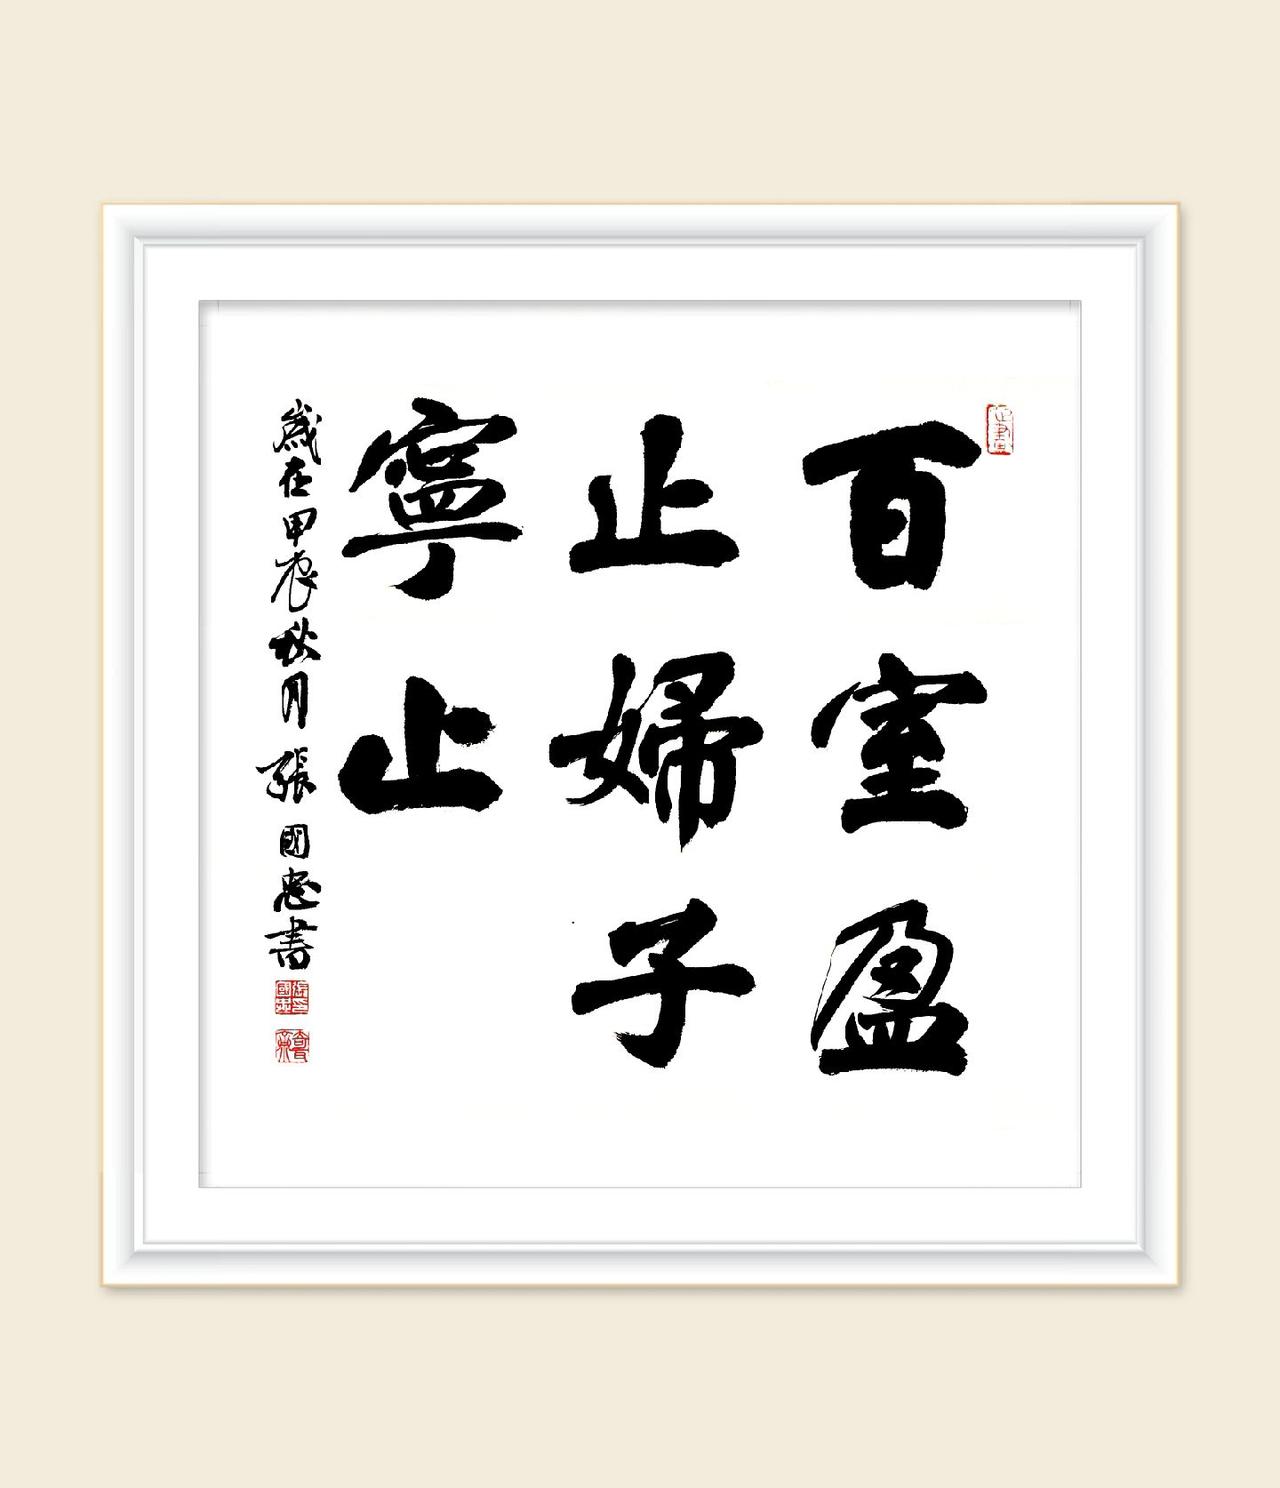 百室盈
止婦子
寧止
歲在甲辰秋月張國忠書